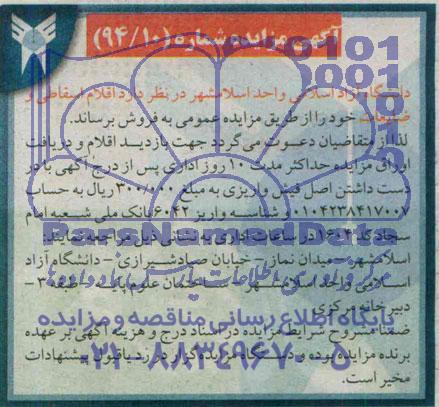 آگهی مزایده شماره (۹۴/۱۰)
دانشگاه آزاد اسلامی واحد اسلامشهر در نظر دارد اقلام اسقاطی و
ضایعات خود را از طریق مزایده عمومی به فروش برساند.
لذا از متقاضیان دعوت می‌گردد جهت بازدید اقلام و دریافت
اوراق مزایده حداکثر مدت ۱۰ روز اداری پس از درج آگهی با در
دست داشتن اصل فیش واریزی به مبلغ ۳۰۰/۰۰۰ ریال به حساب
۰۱۰۴۲۳۸۴۱۷۰۰۷ و شناسه واریز ۶۰۴۲ بانک ملی شعبه امام
سجاد کد ۱۶۰۴ در ساعات اداری به نشانی ذیل مراجعه نمایند:
اسلامشهر – میدان نماز – خیابان صیاد شیرازی – دانشگاه آزاد
اسلامی واحد اسلامشهر – ساختمان علوم پایه – طبقه ۳ –
دبیرخانه مرکزی
ضمنا مشروح شرایط مزایده در اسناد درج و هزینه آگهی بر عهده
برنده مزایده بوده و دستگاه مزایده گزار در رد یا قبول پیشنهادات
مخیر است.
ParsNamadData
پایگاه اطلاع رسانی مناقصه و مزایده
۰۲۱-۸۸۳۴۹۶۷۰-۵